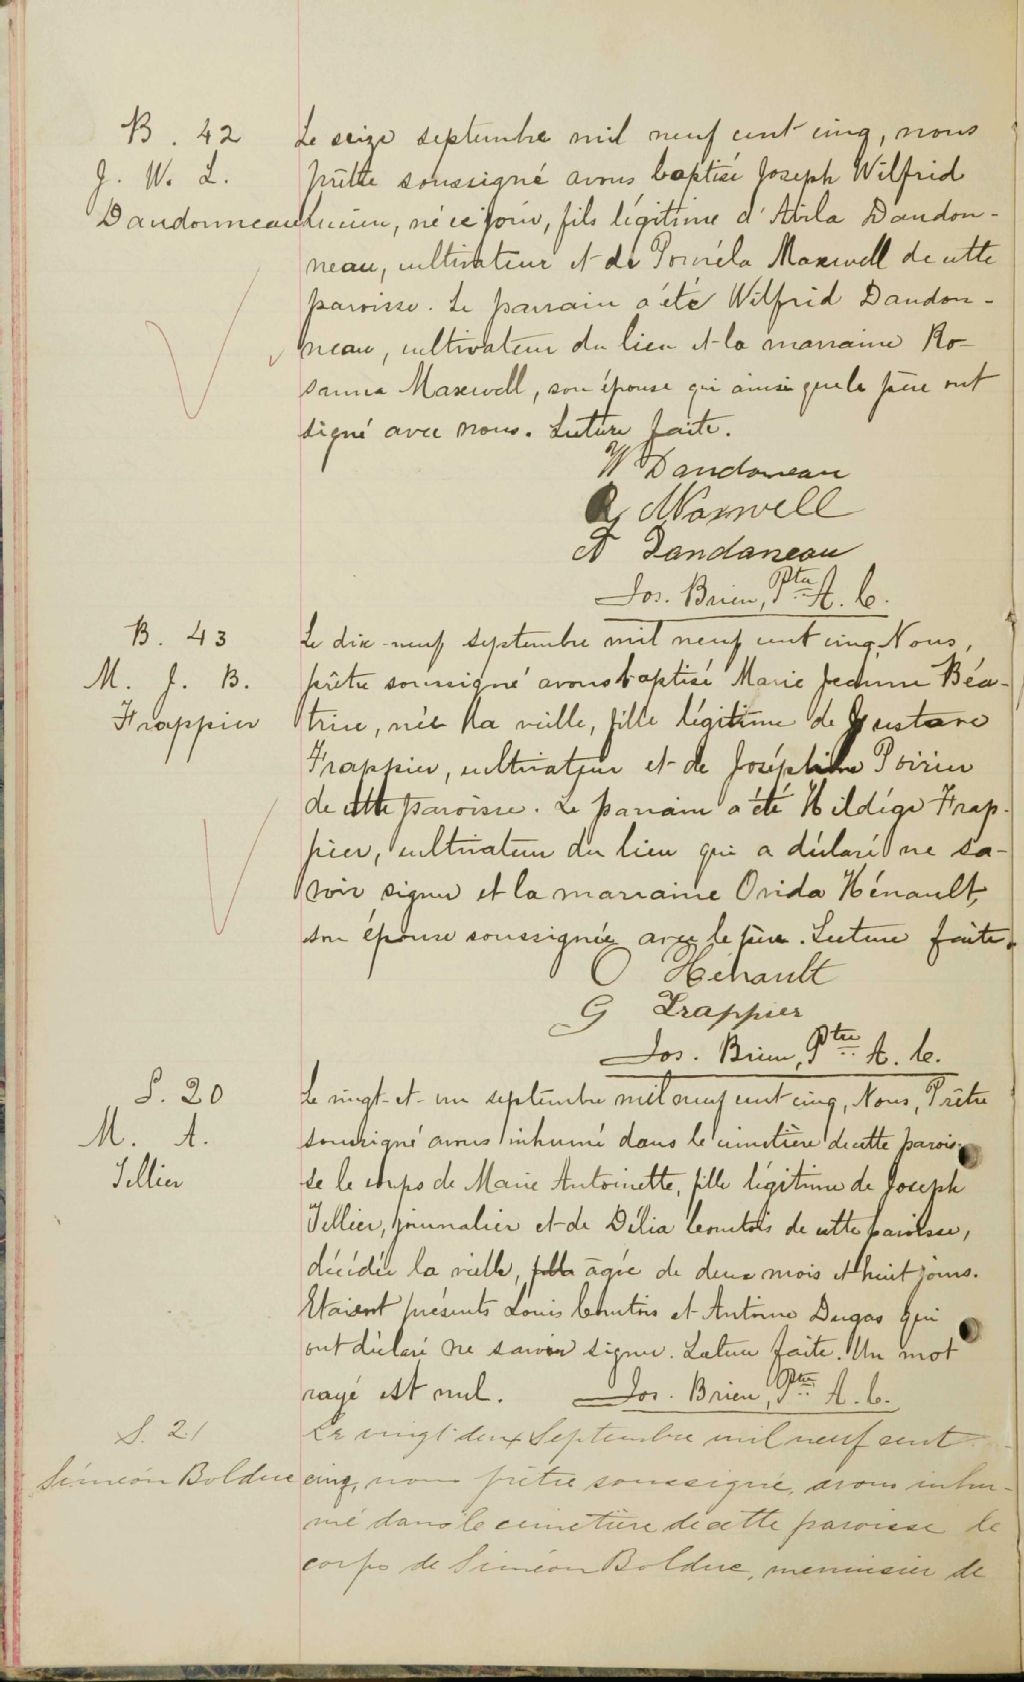 B. 42
J. W. L.
Dandonneau
Le seize septembre mil neuf cent cinq, nous
prêtre soussigné avons baptisé Joseph Wilfrid
Lucien, né ce jour, fils légitime d'Abila Dandon-
neau, cultivateur et de Maxwell de cette
paroisse. Le parrain a été Wilfrid Dandon-
neau, cultivateur du lieu et la marraine Ro-
sanna Maxwell, son épouse qui ainsi que le père ont
signé avec nous. Lecture faite.
W Dandoneau
R Maxwell
A Dandaneau
Jos. Brien, Ptre A. C.
B. 43
M. J. B.
Frappier
Le dix-neuf septembre mil neuf cent cinq, Nous,
prêtre soussigné avons baptisé Marie Jeanne Béa-
trice, née la veille, fille légitime de Gustave
Frappier, cultivateur et de Joséphine Poirier
de cette paroisse. Le parrain a été Hildége Frap-
pier, cultivateur du lieu qui a déclaré ne sa-
voir signer et la marraine Ovida Hénault,
son épouse soussignée avec le père. Lecture faite.
O Hénault
G Frappier
Jos. Brien, Ptre A. C.
S. 20
M. A.
Tellier
Le vingt-et-un septembre mil neuf cent cinq, Nous, Prêtre
soussigné avons inhumé dans le cimetière de cette parois-
se le corps de Marie Antoinette, fille légitime de Joseph
Tellier, journalier et de Délia Comtois de cette paroisse,
décédée la veille, fille âgée de deux mois et huit jours.
Etaient présents Louis Comtois et Antoine Dugas qui
ont déclaré ne savoir signer. Lecture faite. Un mot
rayé est nul. Jos. Brien, Ptre A. C.
S. 21
Siméon Bolduc
Le vingt deux Septembre mil neuf cent
cinq, nous prêtre soussigné, avons inhu-
mé dans le cimetière de cette paroisse le
corps de Siméon Bolduc, menuisier de